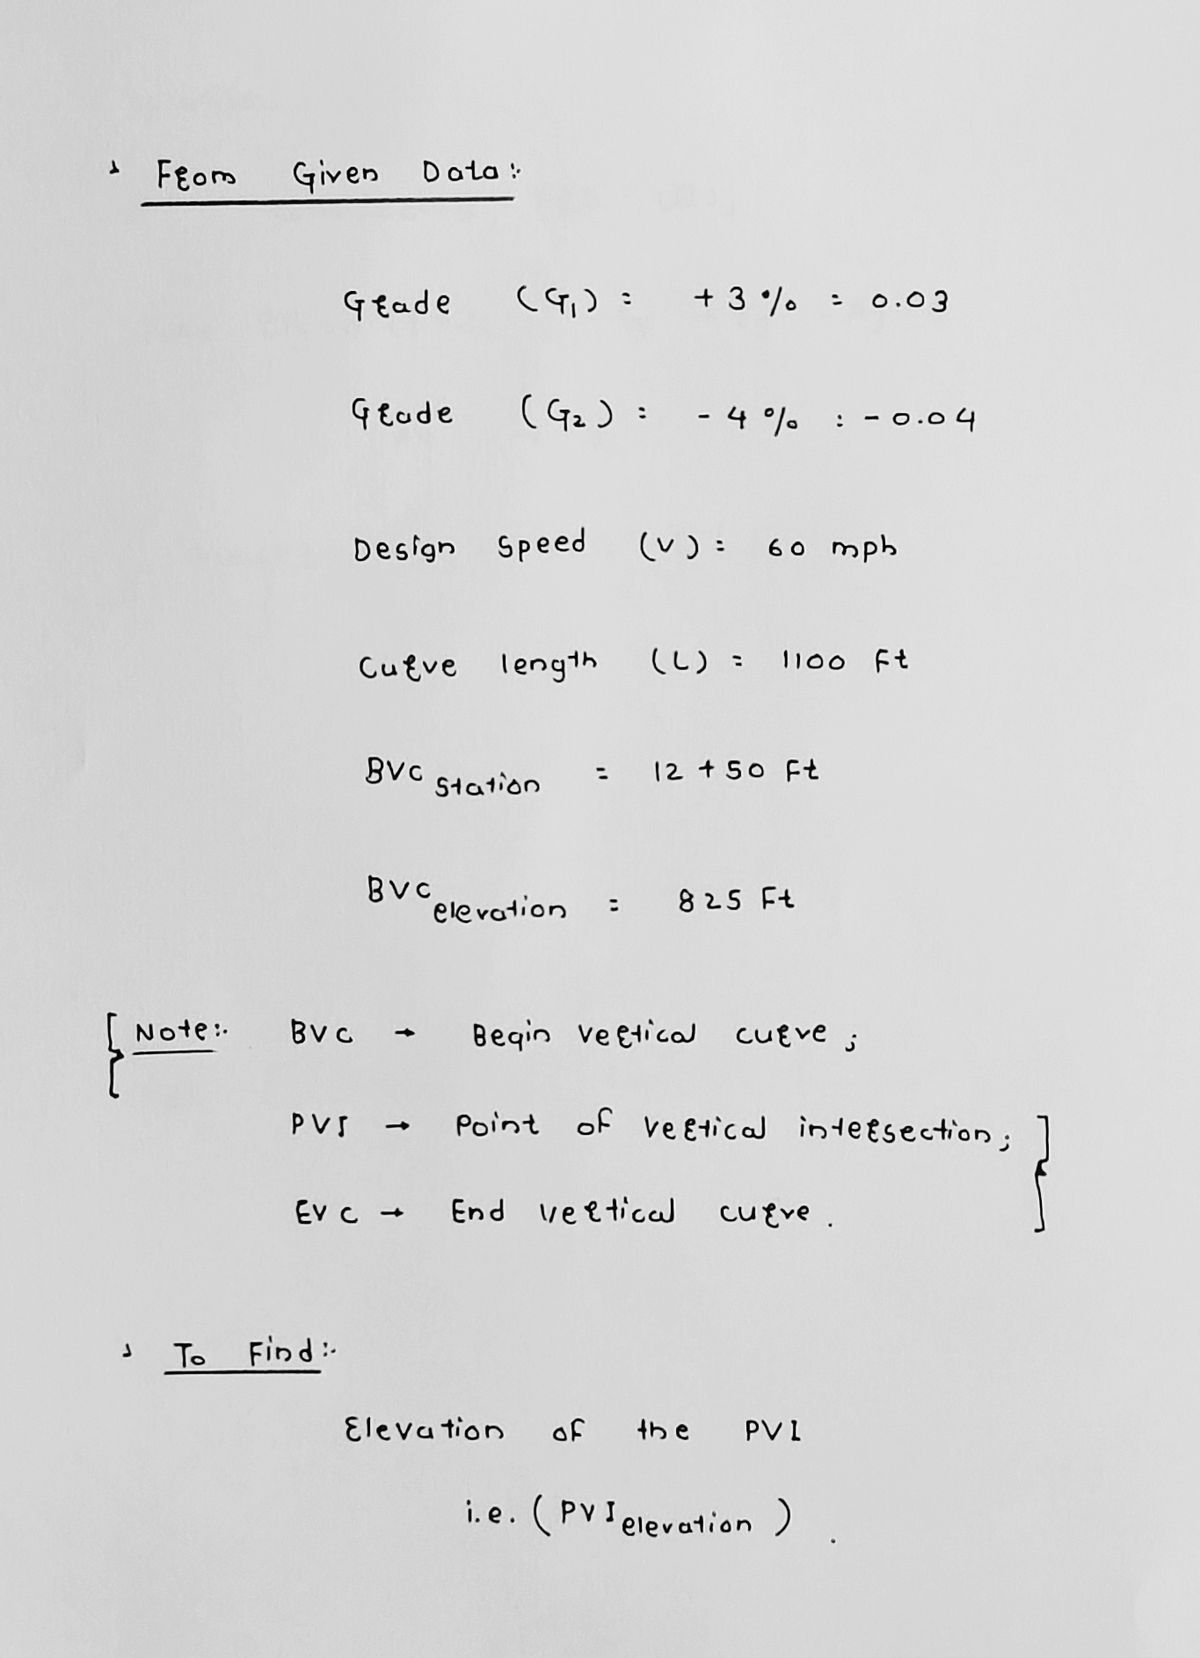 From Given Data :-
Grade (G1) = +3 % = 0.03
Grade (G2) = - 4 % = - 0.04
Design Speed (V) = 60 mph
Curve length (L) = 1100 Ft
BVC Station = 12 + 50 Ft
BVC elevation = 825 Ft
{ Note :- BVC → Begin vertical curve ;
PVI → Point of vertical intersection ; }
EVC → End vertical curve .
To Find :-
Elevation of the PVI
i.e. ( PVI elevation ) .